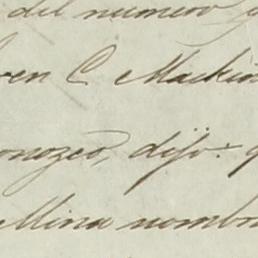 del numero
ven C. Mackin
onozco, dijo: q
Mina nombr